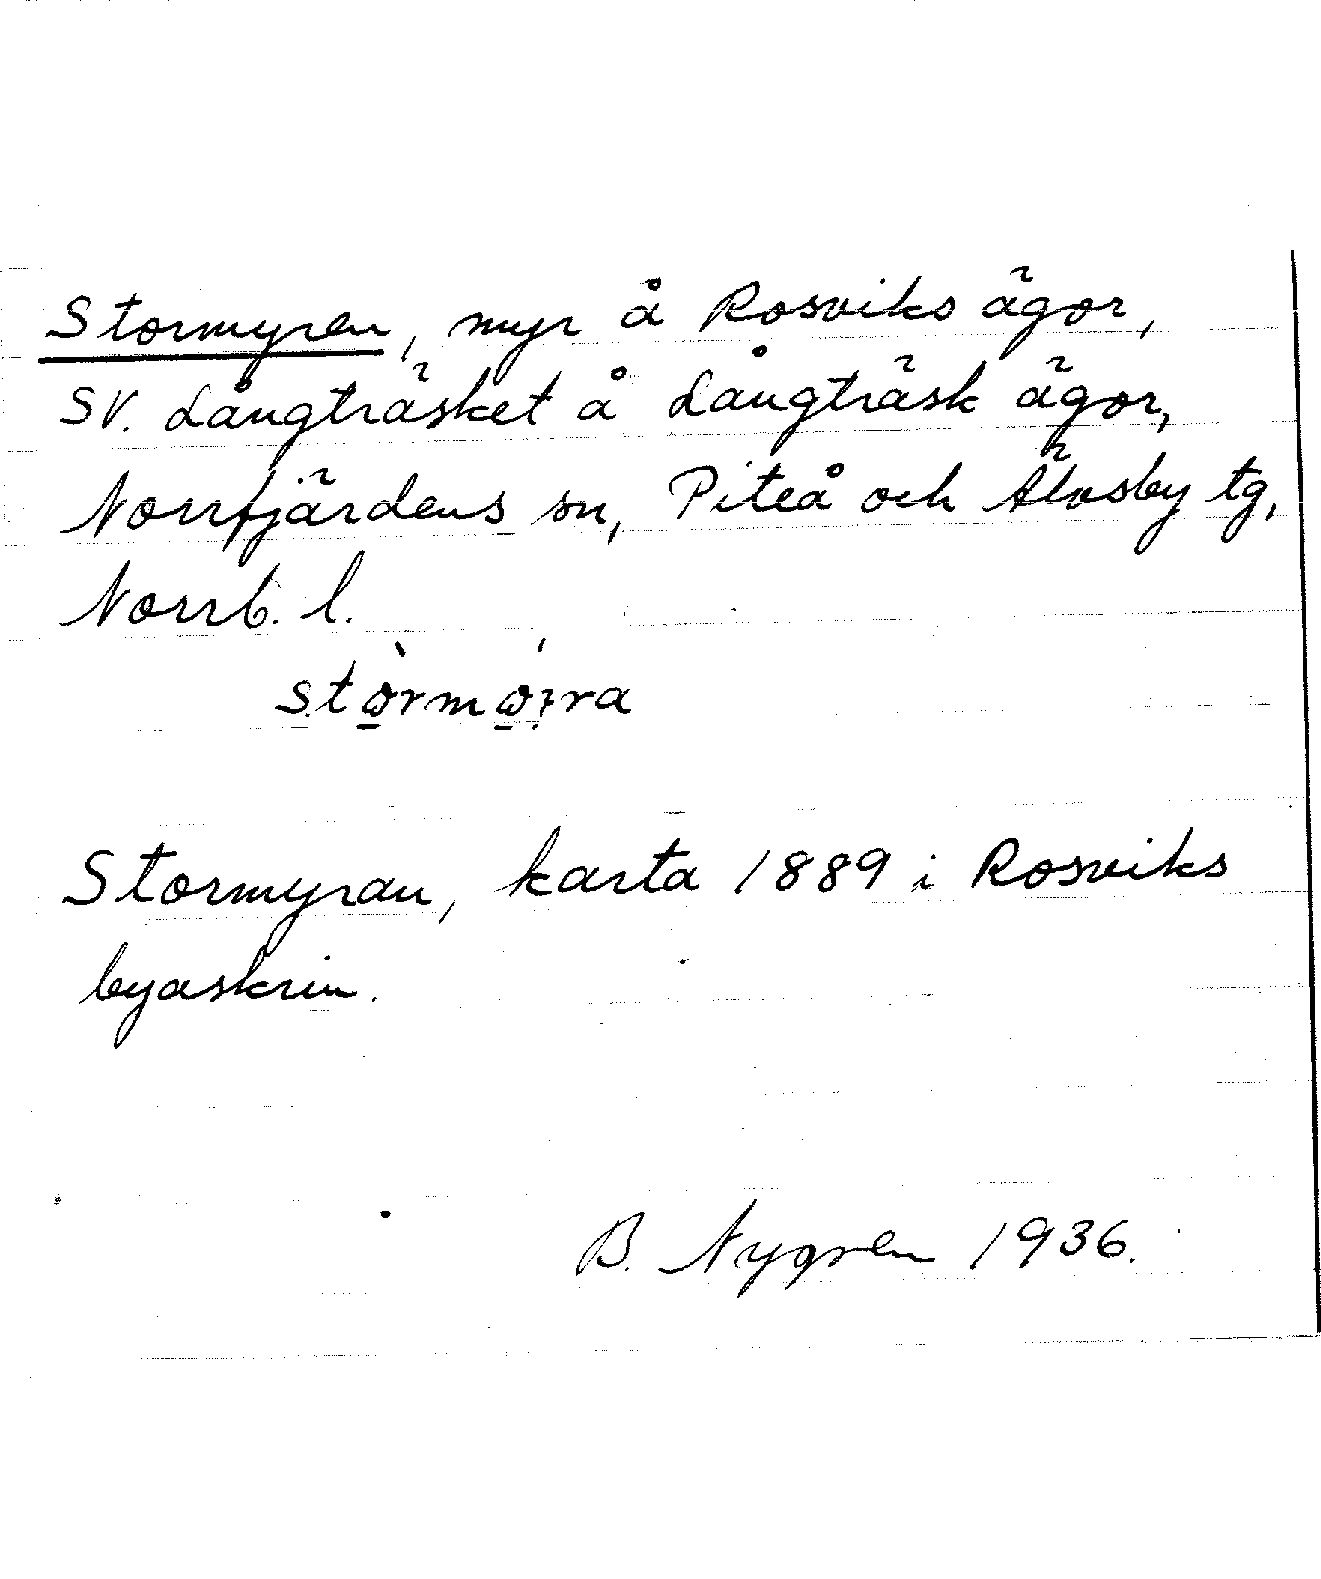 Stormyren, myr å Rosviks ägor,
SV. Långträsket å Långträsk ägor,
Norrfjärdens sn, Piteå och Älvsby tg,
Norrb. l.
Stormyran, karta 1889 i Rosviks
byaskrin.
B. Nygren 1936.